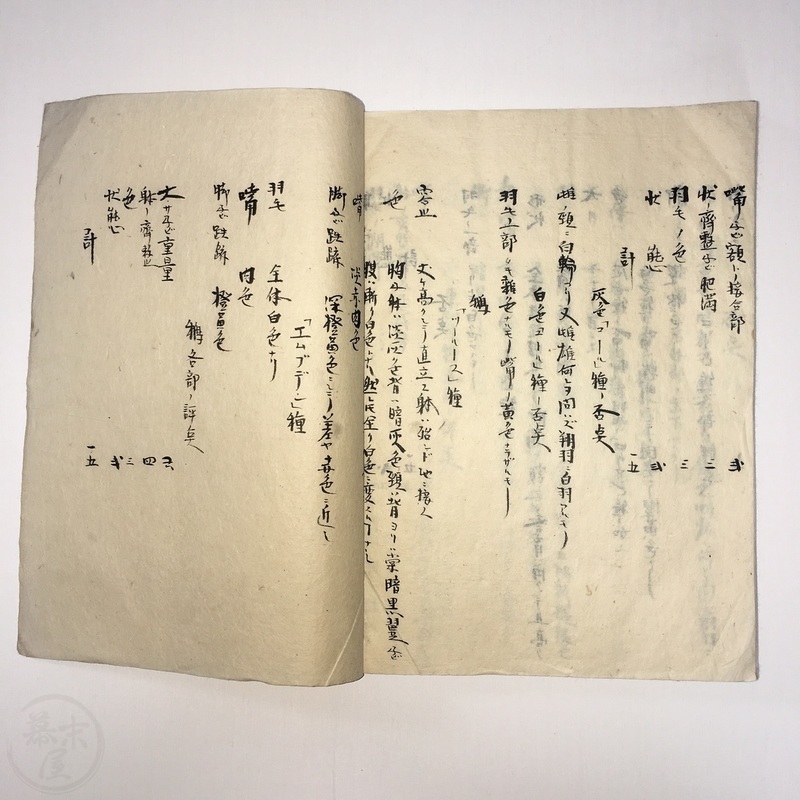 嘴及額ノ接合部 弐
状ノ齊整及肥満 三
羽毛ノ色 三
状態 弐
計 一五
灰色「コール」種ノ否点
雌ノ頸ニ白輪アリ又雌雄何レヲ問ハズ翔羽ニ白羽アルモノ
白色コール種ノ否点
羽毛上部ノ雑色ナルモノ嘴ノ黄色ナラザルモノ
鵝
「ツールース」種
容皃 丈ケ高クシテ直立シ躰ハ殆ンド地ニ接ス
色 胸及躰ハ淡灰色背ハ暗灰色頸ハ背ヨリハ棠暗黒翼及
腹ハ漸ク白色トナリ然レ氏全ク白色ニ変スルナシ
嘴 淡赤肉色
脚及跌蹠 深橙黄色ニシテ差や赤色ニ近し
「エムブデン」種
羽毛 全体白色ナリ
嘴 肉色
脚及跌蹠 橙黄色
鵝各部ノ評点
大サ及重量 六
躰ノ齊整 四
色 三
状態 弐
計 一五
幕末屋